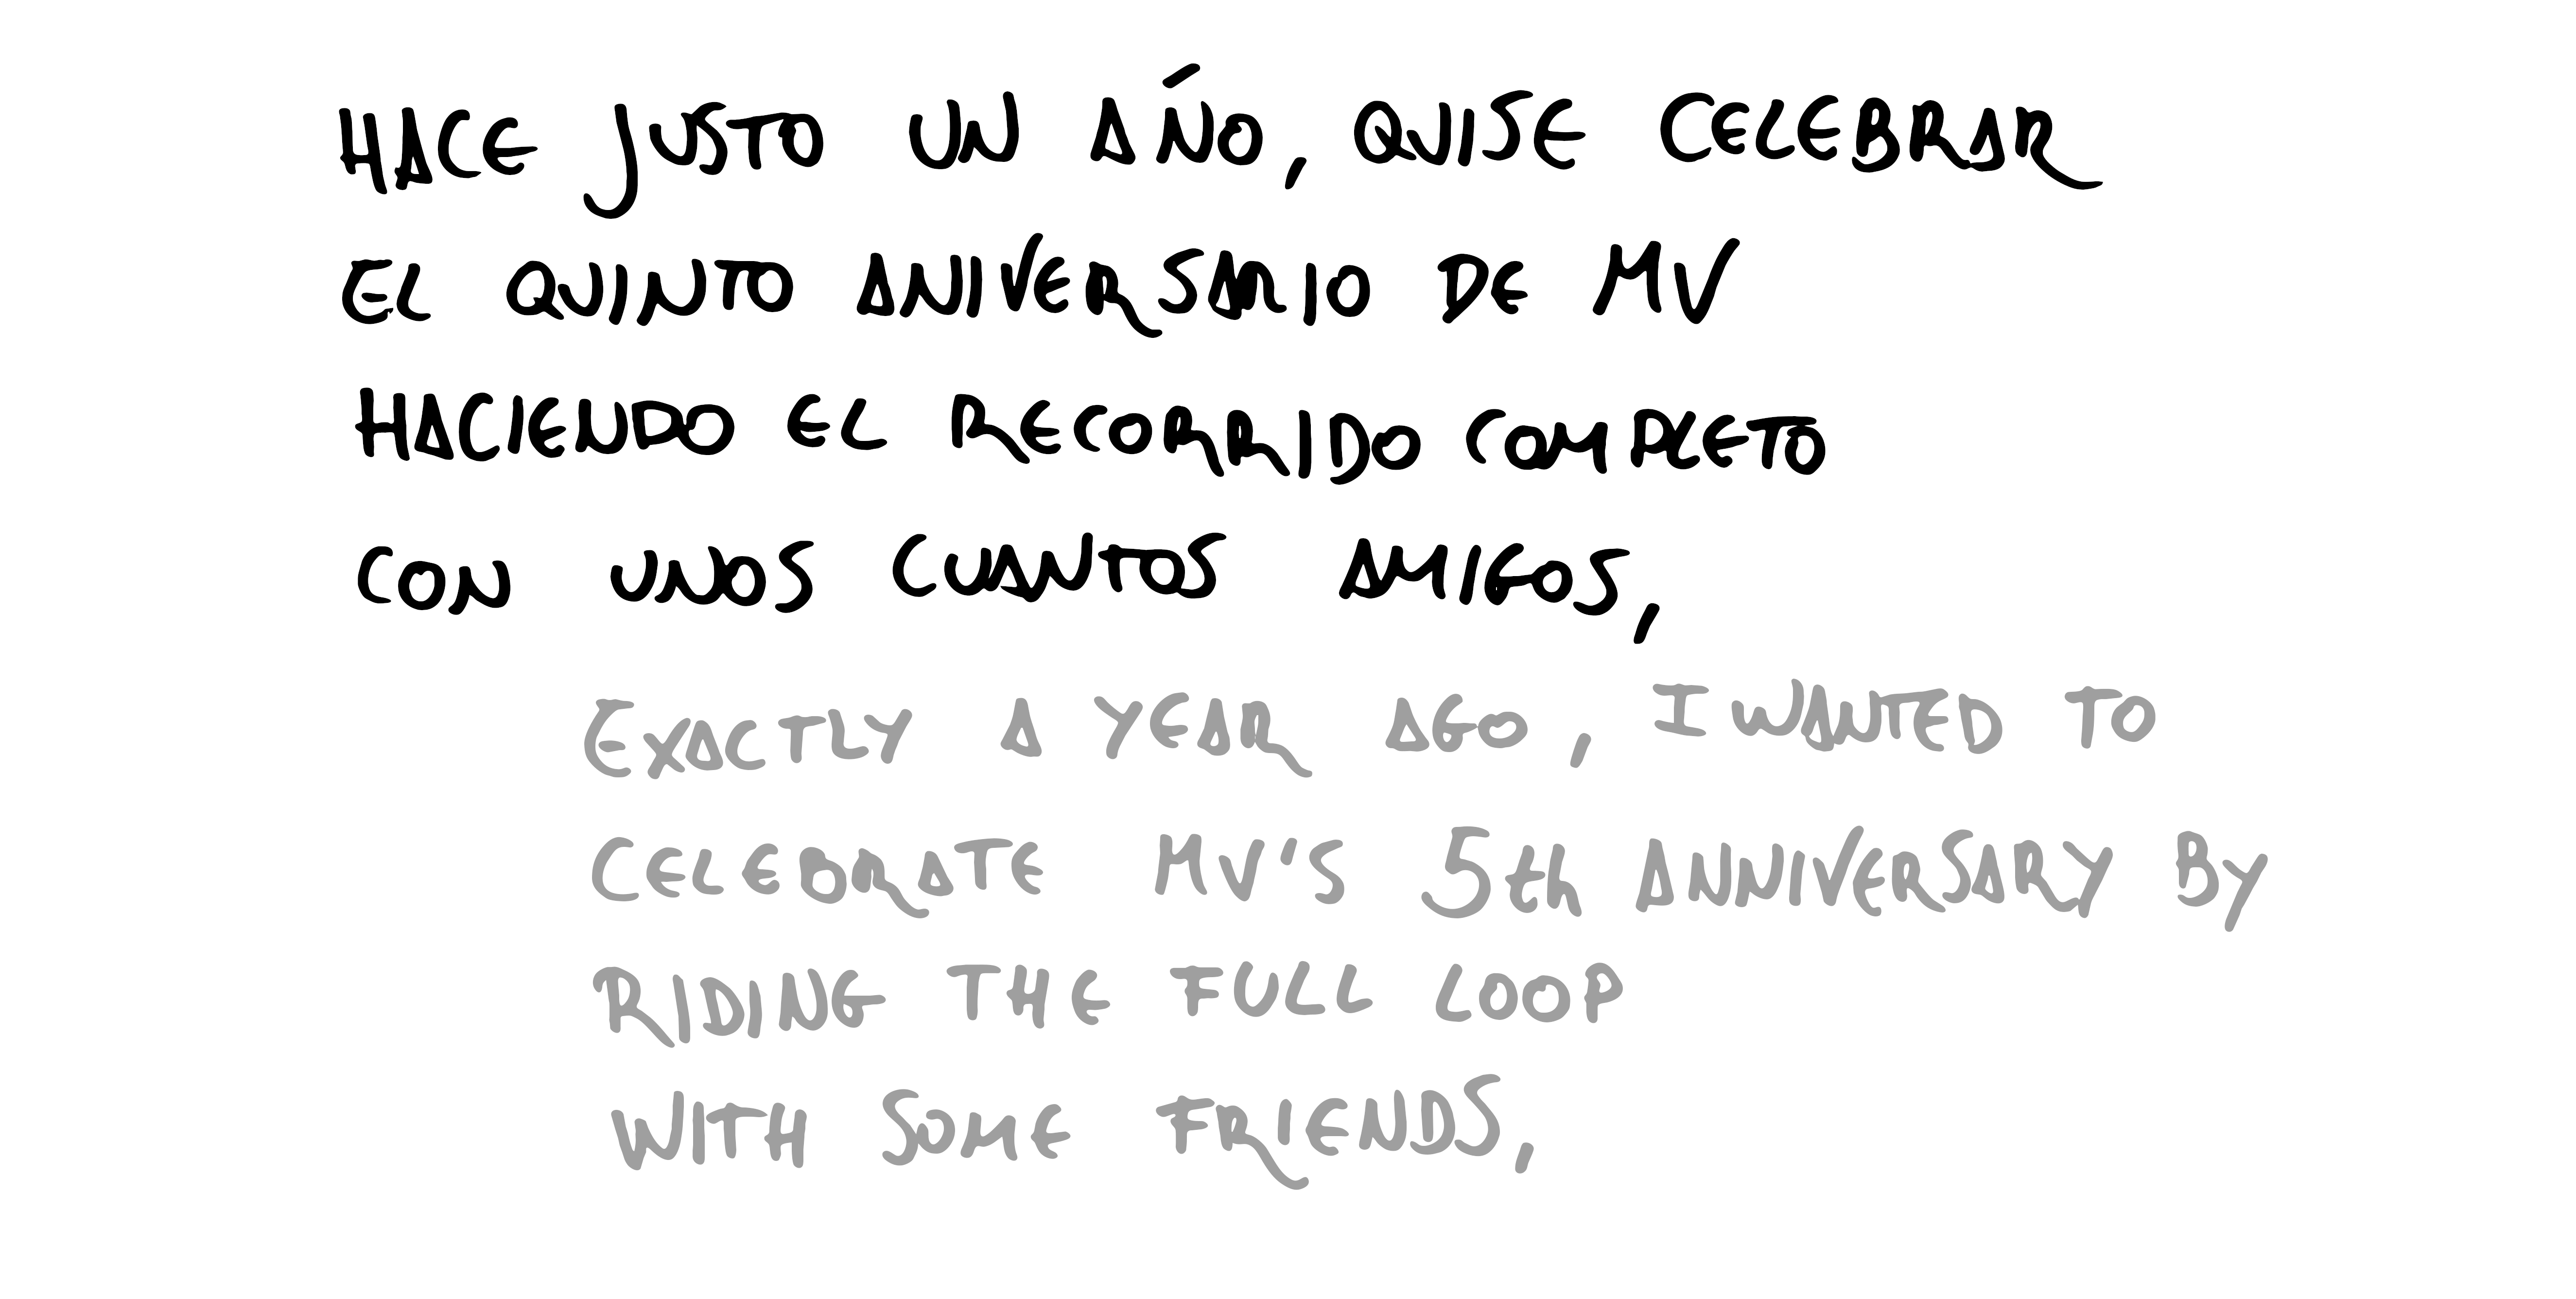 HACE JUSTO UN AÑO, QUISE CELEBRAR
EL QUINTO ANIVERSARIO DE MV
HACIENDO EL RECORRIDO COMPLETO
CON UNOS CUANTOS AMIGOS,
EXACTLY A YEAR AGO, I WANTED TO
CELEBRATE MV'S 5th ANNIVERSARY BY
RIDING THE FULL LOOP
WITH SOME FRIENDS,